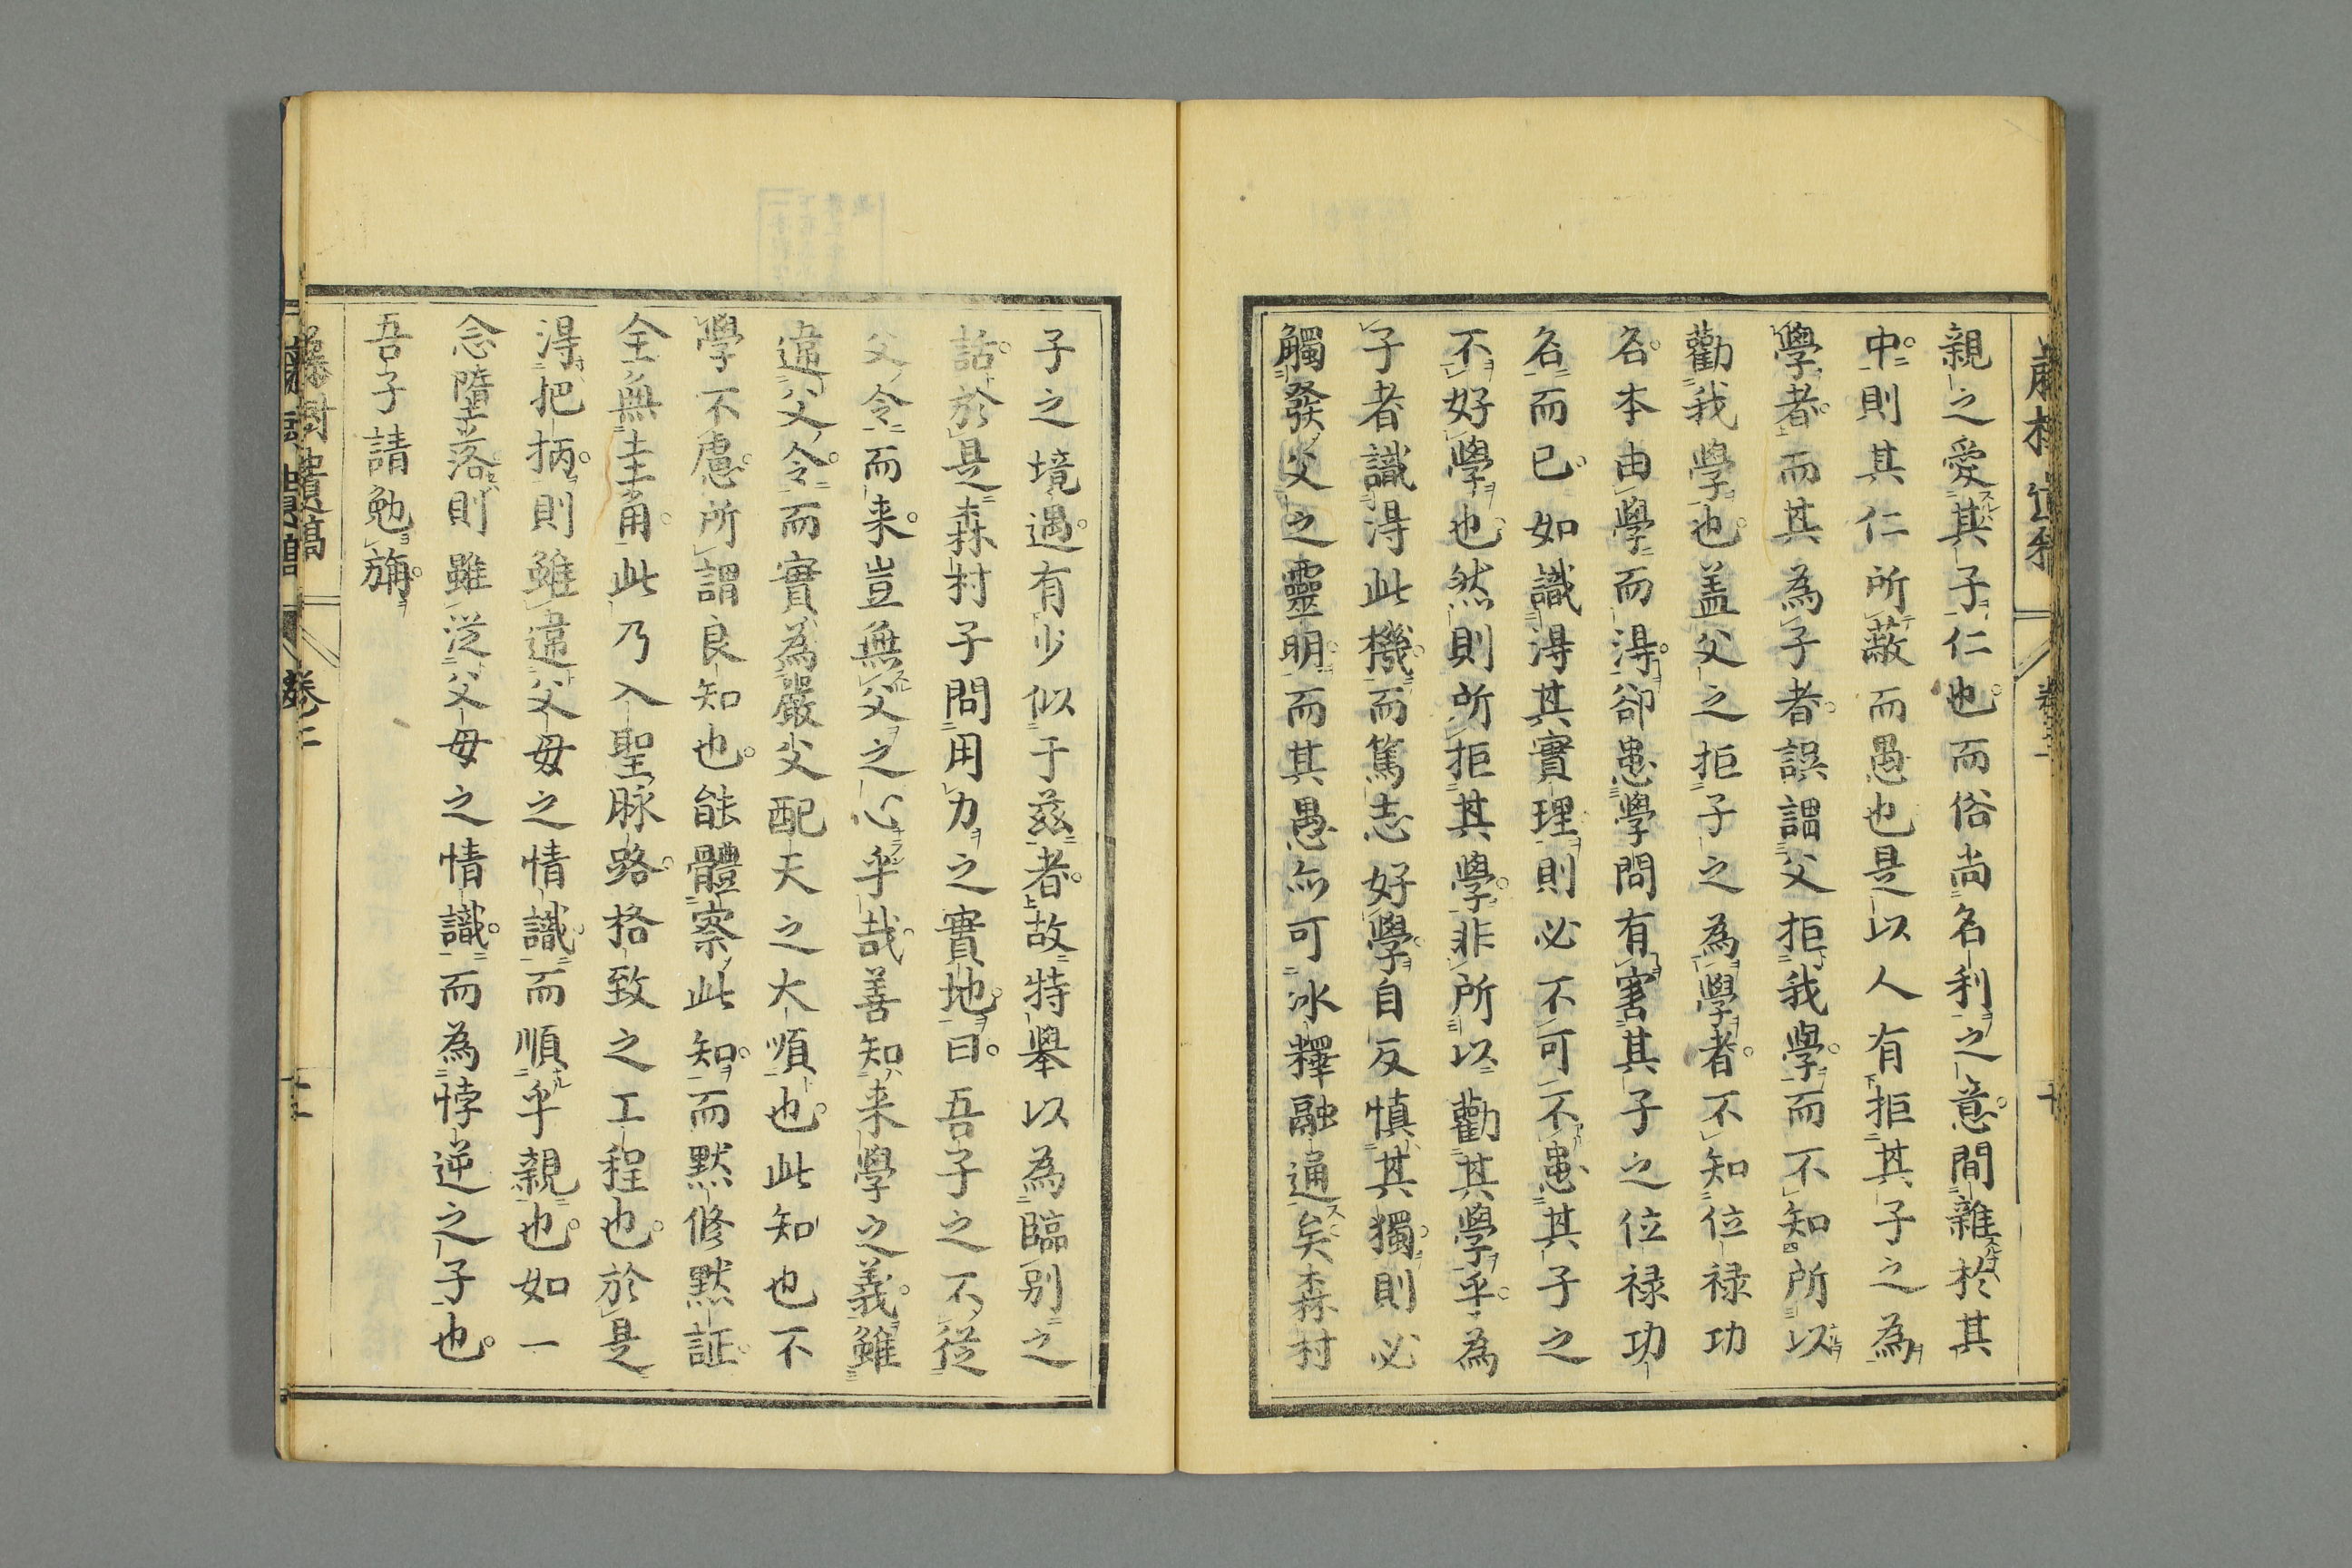 親之愛其子仁也而俗尚名利之意間雜於其
中則其仁所蔽而愚也是以人有拒其子之為
學者而其為子者誤謂父拒我學而不知所以
勸我學也盖父之拒子之為學者不知位禄功
名本由學而得卻患學問有害其子之位禄功
名而已如識得其實理則必不可不患其子之
不好學也然則所拒其學非所以勸其學乎為
子者識得此機而篤志好學自反慎其獨則必
觸發父之靈明而其愚亦可冰釋融通矣森村
子之境遇有少似于茲者故特舉以為臨别之
話於是森村子問用力之實地曰吾子之不従
父令而来豈無父之心乎哉善知来學之義雖
違父令而實為嚴父配天之大順也此知也不
學不慮所謂良知也能體察此知而黙修黙証
全無圭角此乃入聖脉路格致之工程也於是
得把柄則雖違父母之情識而順乎親也如一
念墮落則雖従父母之情識而為悖逆之子也
吾子請勉旃
藤樹遺稿 卷二